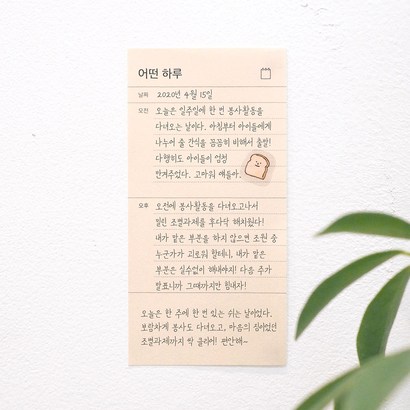 어떤 하루
날짜 2020년 4월 15일
오전 오늘은 일주일에 한 번 봉사활동을
다녀오는 날이다. 아침부터 아이들에게
나누어 줄 간식을 꼼꼼히 비해서 출발!
다행히도 아이들이 엄청
반겨주었다. 고마워 얘들아.
오후 오전에 봉사활동을 다녀오고나서
밀린 조별과제를 후다닥 해치웠다!
내가 맡은 부분을 하지 않으면 조원 중
누군가가 괴로워 할테니, 내가 맡은
부분은 실수없이 해내야지! 다음 주가
발표니까 그때까지만 힘내자!
오늘은 한 주에 한 번 있는 쉬는 날이었다.
보람차게 봉사도 다녀오고, 마음의 짐이었던
조별과제까지 싹 클리어! 편안해~